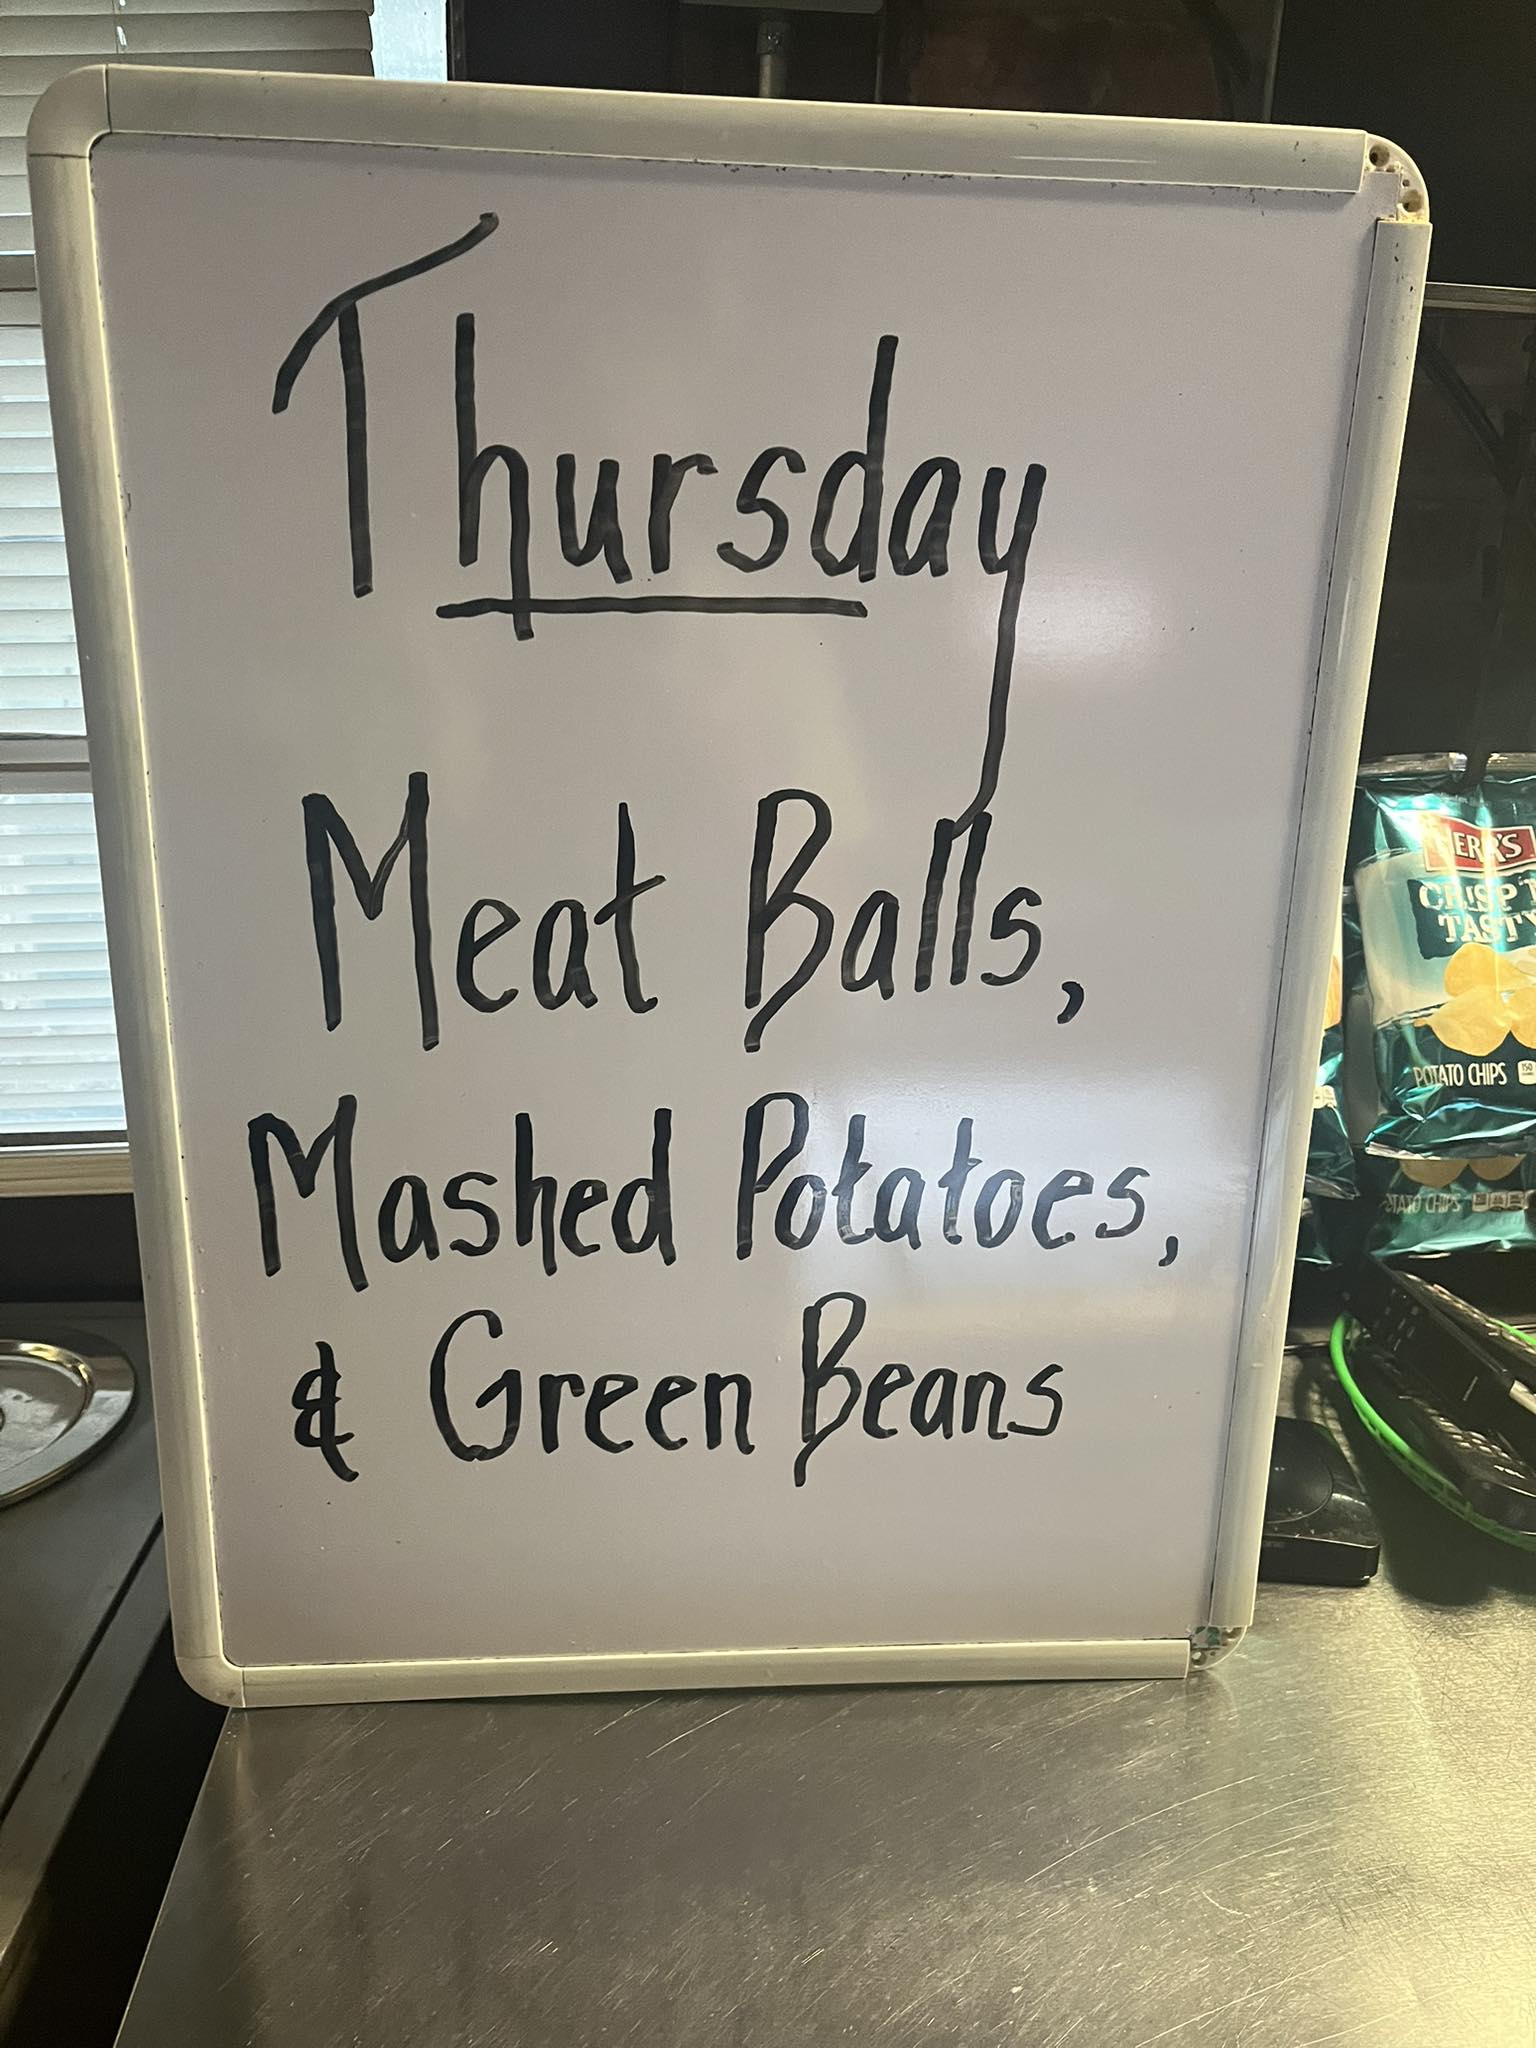 Thursday
Meat Balls,
Mashed Potatoes,
& Green Beans
HERR'S
CRISP
TASTY
POTATO CHIPS 150
POTATO CHIPS